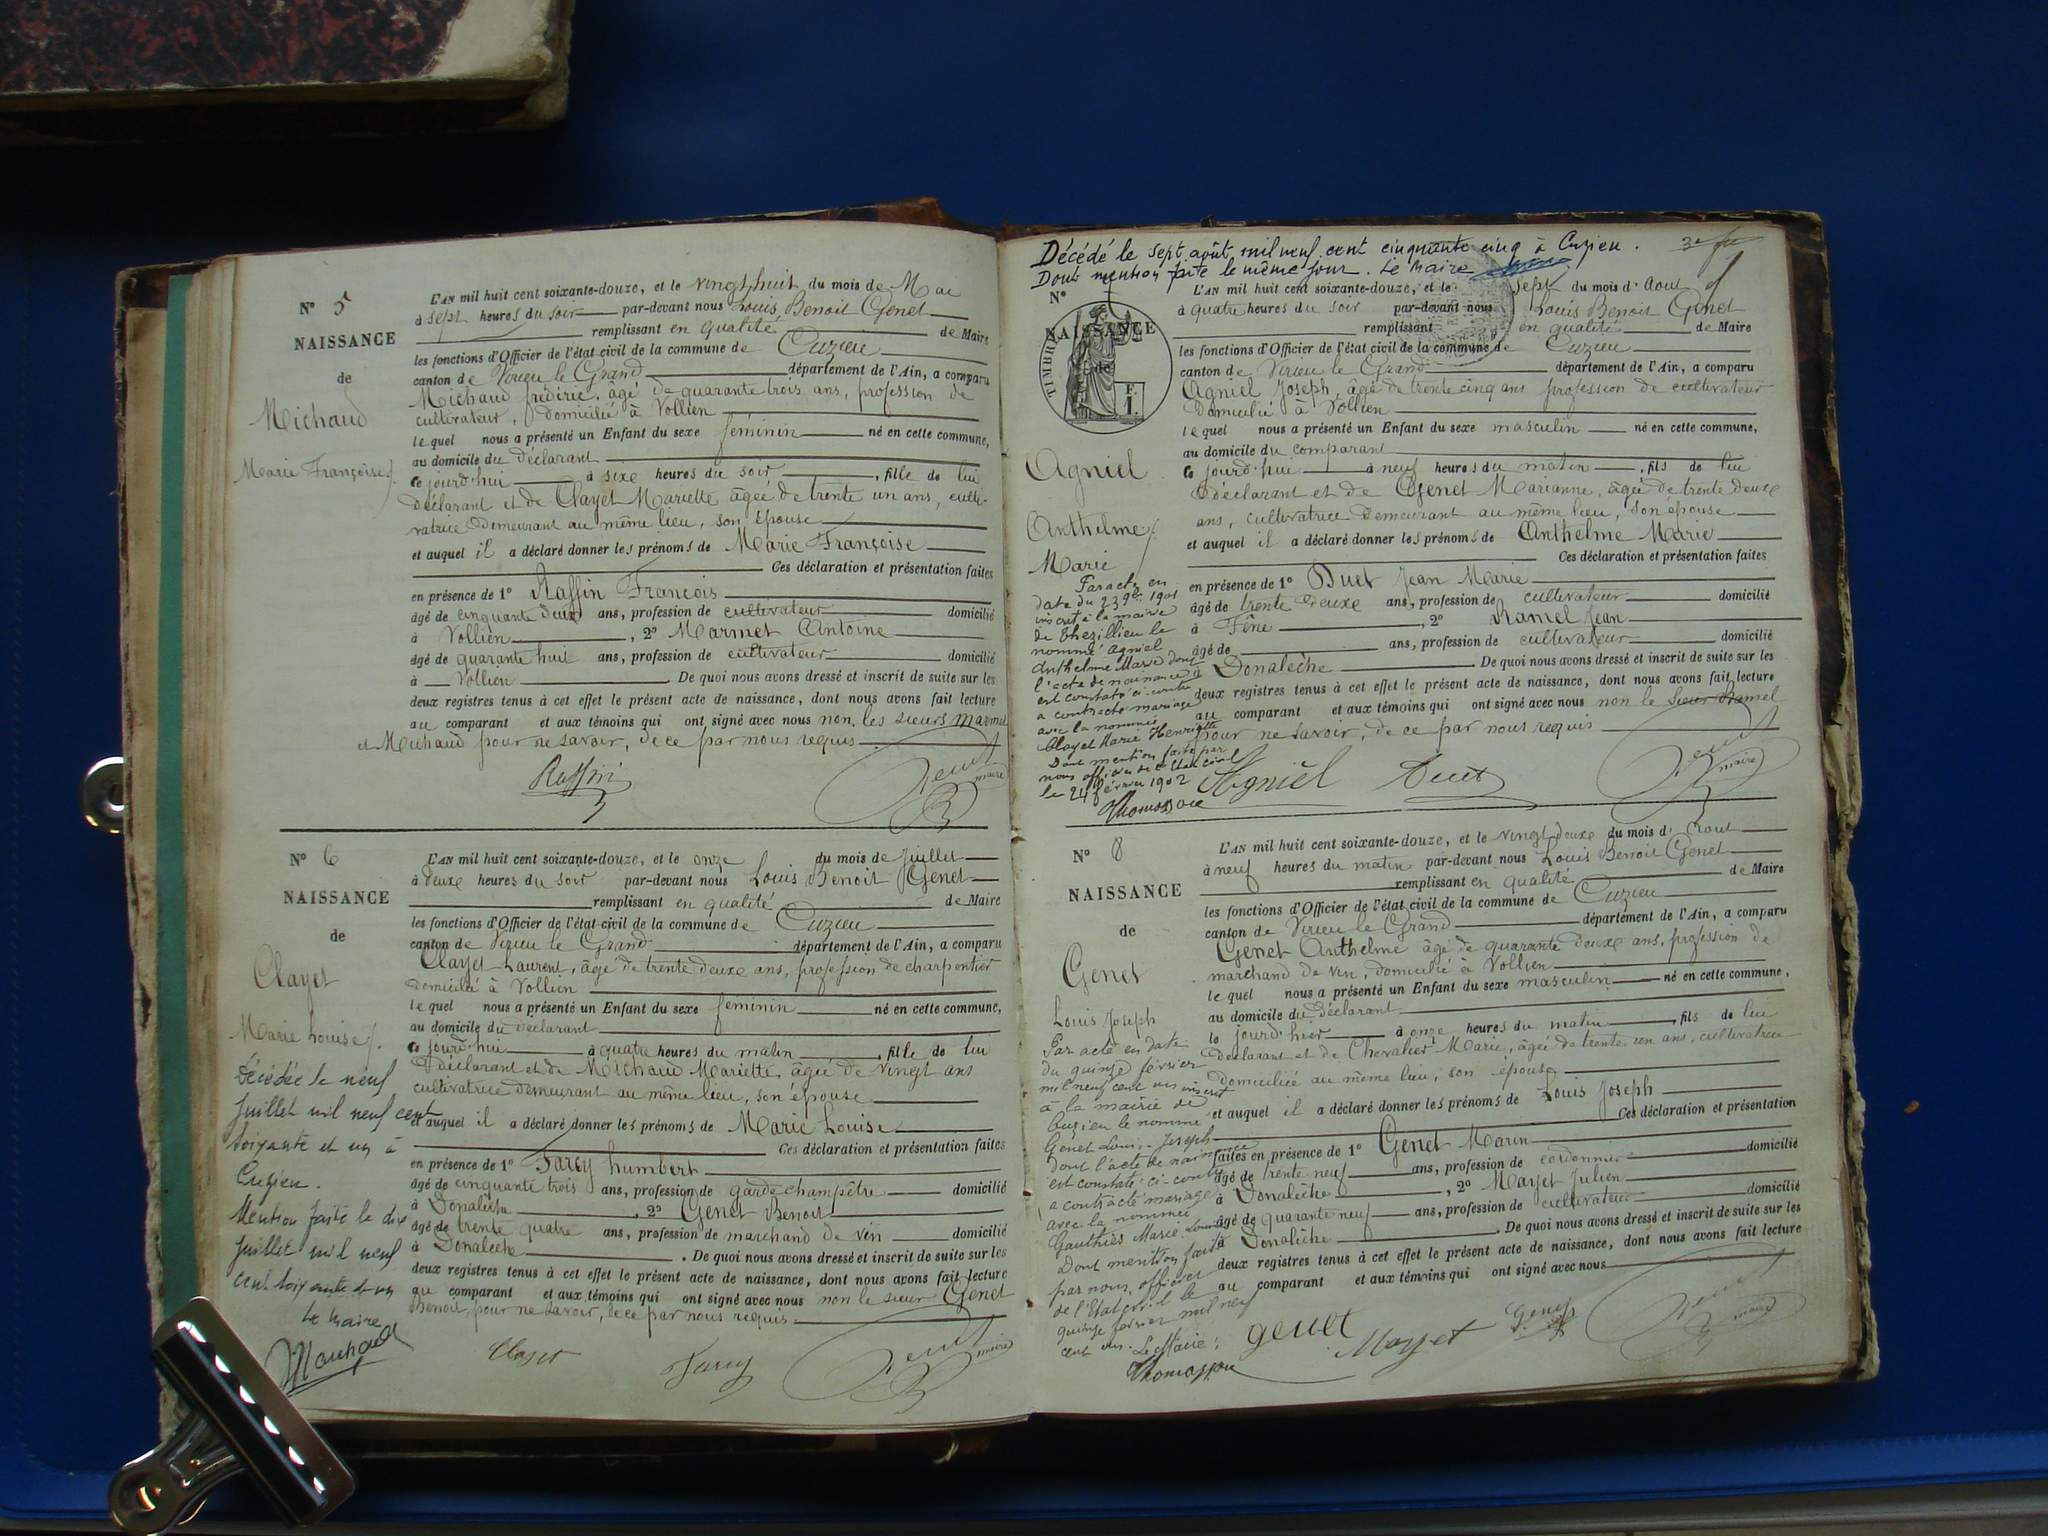 N° 5
NAISSANCE
de
Michaud
Marie Françoise
L'AN mil huit cent soixante-douze, et le vingt huit du mois de Mai
à sept heures du soir par-devant nous Louis Benoit Genet
remplissant en qualité de Maire
les fonctions d'Officier de l'état civil de la commune de Cuzieu
canton de Virieu le Grand département de l'Ain, a comparu
Michaud frédéric, âgé de quarante trois ans, profession de
cultivateur, domicilié à Vollien
le quel nous a présenté un Enfant du sexe féminin né en cette commune,
au domicile du déclarant
ce jourd'hui à sixe heures du soir, fille de lui
déclarant et de Clayet Mariette âgée de trente un ans, culti-
vatrice demeurant au même lieu, son épouse
et auquel il a déclaré donner les prénoms de Marie Françoise
Ces déclaration et présentation faites
en présence de 1° Raffin François
âgé de cinquante deux ans, profession de cultivateur domicilié
à Vollien, 2° Marmet Antoine
âgé de quarante huit ans, profession de cultivateur domicilié
à Vollien. De quoi nous avons dressé et inscrit de suite sur les
deux registres tenus à cet effet le présent acte de naissance, dont nous avons fait lecture
au comparant et aux témoins qui ont signé avec nous non, les sieurs Marmet
et Michaud pour ne savoir, de ce par nous requis
Raffin Genet maire
N° 6
NAISSANCE
de
Clayet
Marie Louise
Décédée le neuf
Juillet mil neuf cent
soixante et un à
Cuzieu.
Mention faite le dix
Juillet mil neuf
cent soixante et un
Le Maire
L'AN mil huit cent soixante-douze, et le onze du mois de Juillet
à deuxe heures du soir par-devant nous Louis Benoit Genet
remplissant en qualité de Maire
les fonctions d'Officier de l'état civil de la commune de Cuzieu
canton de Virieu le Grand département de l'Ain, a comparu
Clayet Laurent, âgé de trente deuxe ans, profession de charpentier
domicilié à Vollien
le quel nous a présenté un Enfant du sexe féminin né en cette commune,
au domicile du déclarant
ce jourd'hui à quatre heures du matin, fille de lui
déclarant et de Michaud Mariette, âgée de vingt ans
cultivatrice demeurant au même lieu, son épouse
et auquel il a déclaré donner les prénoms de Marie Louise
Ces déclaration et présentation faites
en présence de 1° Farcy humbert
âgé de cinquante trois ans, profession de garde champêtre domicilié
à Donalèche, 2° Genet Benoit
âgé de trente quatre ans, profession de marchand de vin domicilié
à Donalèche. De quoi nous avons dressé et inscrit de suite sur les
deux registres tenus à cet effet le présent acte de naissance, dont nous avons fait lecture
au comparant et aux témoins qui ont signé avec nous non le sieur Genet
Benoit, pour ne savoir, de ce par nous requis
Clayet Farcy Genet maire
Décédé le sept août mil neuf cent cinquante cinq à Cuzieu.
Dont mention faite le même jour. Le Maire
N°
NAISSANCE
de
TIMBRE
F.
1.
Agniel
Anthelme
Marie
Par acte en
date du 23 9bre 1901
inscrit à la mairie
de Thezillieu le
nommé Agniel
Anthelme Marie dont
l'acte de naissance
est constaté ci-contre
a contracté mariage
avec la nommée
Clayet Marie Henriette
Dont mention faite par
nous officier de l'état civil
le 24 février 1902
Thomasson
L'AN mil huit cent soixante-douze, et le sept du mois d'Aout
à quatre heures du soir par-devant nous Louis Benoit Genet
remplissant en qualité de Maire
les fonctions d'Officier de l'état civil de la commune de Cuzieu
canton de Virieu le Grand département de l'Ain, a comparu
Agniel Joseph, âgé de trente cinq ans profession de cultivateur
domicilié à Vollien
le quel nous a présenté un Enfant du sexe masculin né en cette commune,
au domicile du comparant
ce jourd'hui à neuf heures du matin, fils de lui
déclarant et de Genet Marianne, âgée de trente deuxe
ans, cultivatrice demeurant au même lieu, son épouse
et auquel il a déclaré donner les prénoms de Anthelme Marie
Ces déclaration et présentation faites
en présence de 1° Duet Jean Marie
âgé de trente deuxe ans, profession de cultivateur domicilié
à Fêne, 2° Ramel Jean
âgé de ans, profession de cultivateur domicilié
à Donalèche. De quoi nous avons dressé et inscrit de suite sur les
deux registres tenus à cet effet le présent acte de naissance, dont nous avons fait lecture
au comparant et aux témoins qui ont signé avec nous non le sieur Ramel
pour ne savoir, de ce par nous requis
Agniel Duet Genet maire
N° 8
NAISSANCE
de
Genet
Louis Joseph
Par acte en date
du quinze février
mil neuf cent un inscrit
à la mairie de
Cuzieu le nommé
Genet Louis Joseph
dont l'acte de naissance
est constaté ci-contre
a contracté mariage
avec la nommée
Gauthier Marie Louise
Dont mention faite
par nous, officier
de l'Etat civil le
quinze février mil neuf
cent un. Le Maire:
Thomasson
L'AN mil huit cent soixante-douze, et le vingt deuxe du mois d'Aout
à neuf heures du matin par-devant nous Louis Benoit Genet
remplissant en qualité de Maire
les fonctions d'Officier de l'état civil de la commune de Cuzieu
canton de Virieu le Grand département de l'Ain, a comparu
Genet Anthelme âgé de quarante deuxe ans, profession de
marchand de vin, domicilié à Vollien
le quel nous a présenté un Enfant du sexe masculin né en cette commune,
au domicile du déclarant
le jourd'hier à onze heures du matin, fils de lui
déclarant et de Chevalier Marie, âgée de trente un ans, cultivatrice
domiciliée au même lieu, son épouse
et auquel il a déclaré donner les prénoms de Louis Joseph
Ces déclaration et présentation
faites en présence de 1° Genet Marin
âgé de trente neuf ans, profession de cordonnier domicilié
à Donalèche, 2° Mayet Julien
âgé de quarante neuf ans, profession de cultivateur domicilié
à Donalèche. De quoi nous avons dressé et inscrit de suite sur les
deux registres tenus à cet effet le présent acte de naissance, dont nous avons fait lecture
au comparant et aux témoins qui ont signé avec nous
genet Mayet Genet Genet maire